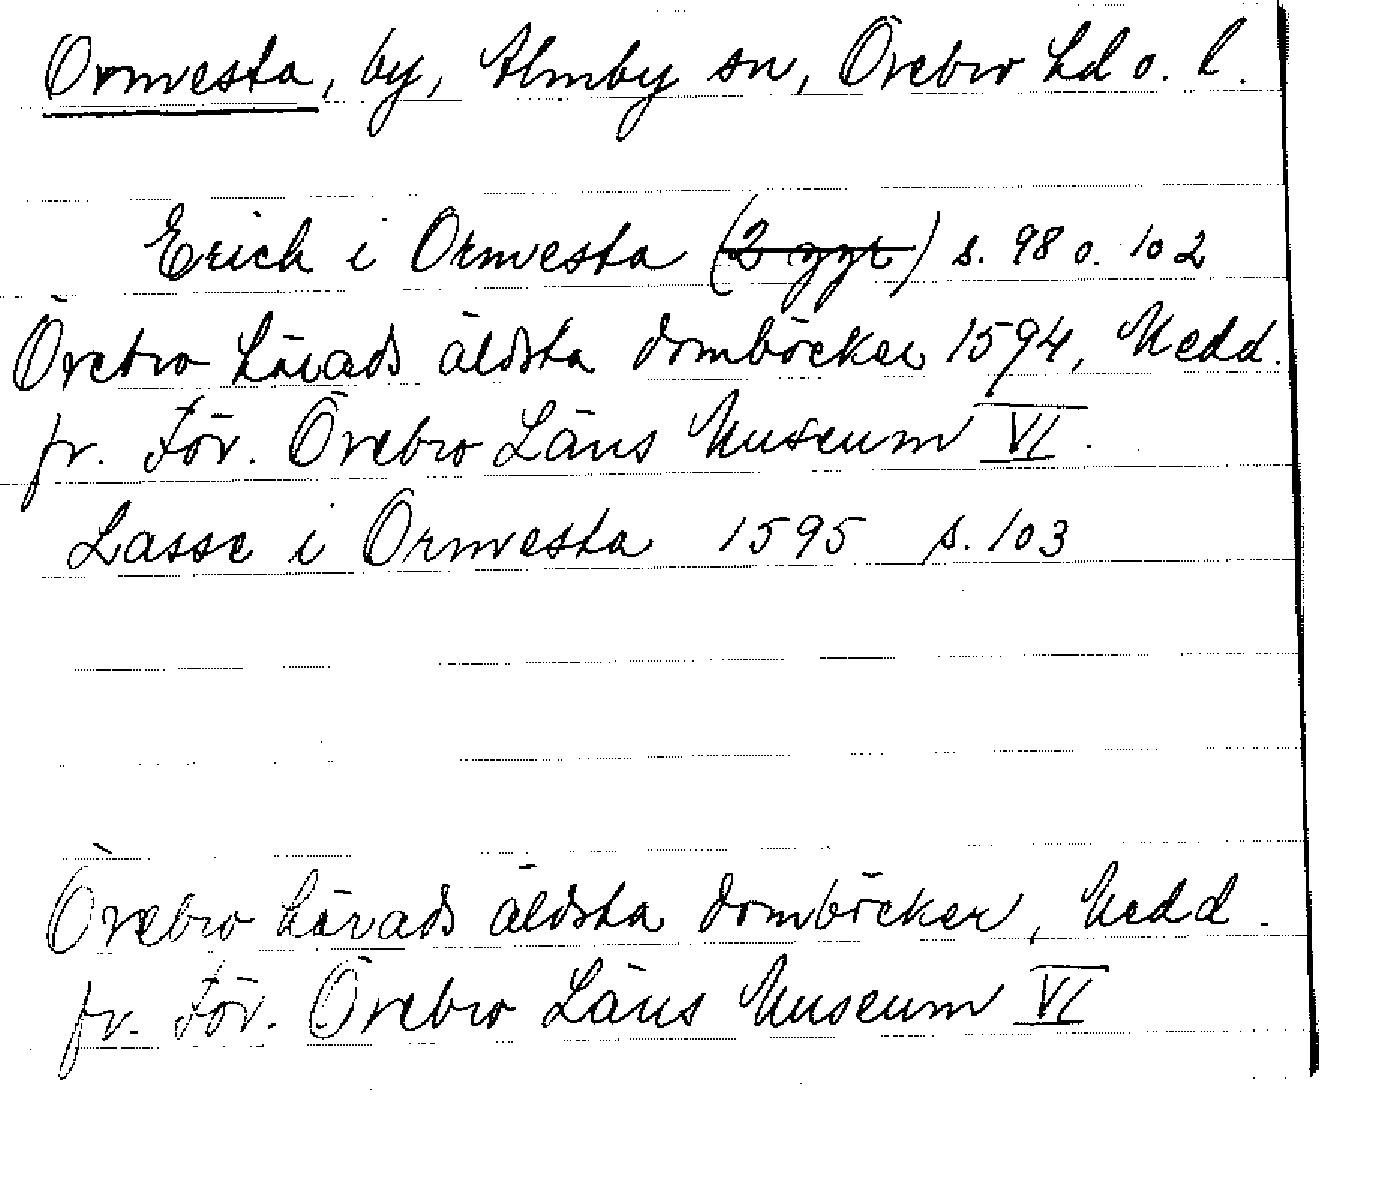 Ormesta, by, Almby sn, Örebro hd o. l.
Erich i Ormesta (2 ggr) s. 98 o. 102
Örebro härads äldsta domböcker 1594, Medd.
fr. För. Örebro Läns Museum VI.
Lasse i Ormesta 1595 s. 103
Örebro härads äldsta domböcker, Medd.
fr. För. Örebro Läns Museum VI